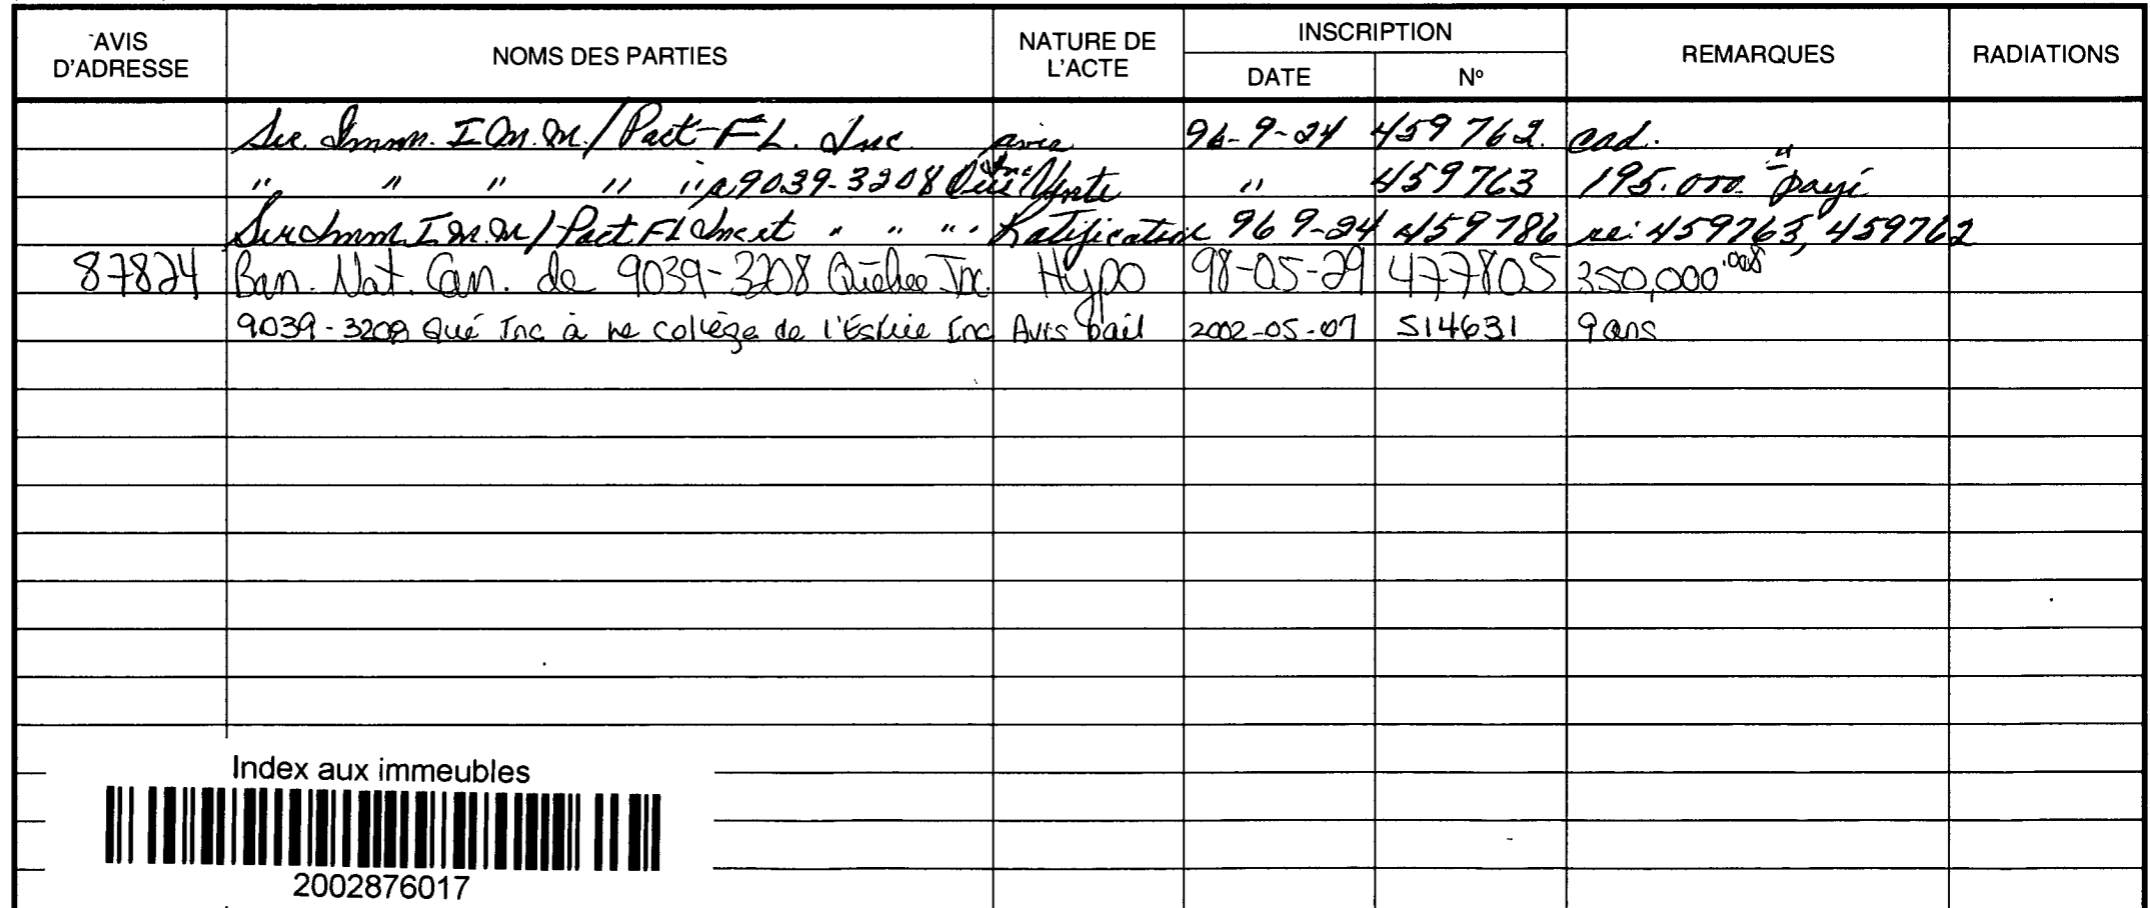 AVIS D'ADRESSE NOMS DES PARTIES NATURE DE L'ACTE INSCRIPTION DATE Nº REMARQUES RADIATIONS
Imm. I.M.M. / Pact-FL. Inc avis 96-9-24 459 762. cad.
" " " " " à 9039-3208 Qué Inc Vente " 459763 195.000 payé
Imm I.M.M / Pact FL Inc et " " " " Ratification 96 9-24 459786 re: 459763, 459762
87824 Ban. Nat. Can. de 9039-3208 Québec Inc. Hypo 98-05-29 477805 350,000
9039-3208 Qué Inc à collège de l'Estrie Inc Avis bail 2002-05-07 514631 9 ans
Index aux immeubles
2002876017